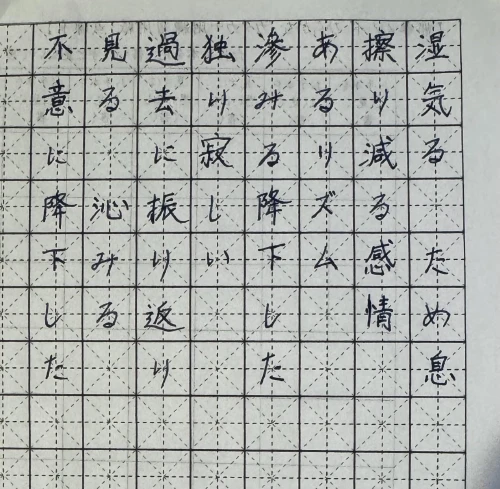 湿気る ため息
擦り減る感情
あるリズム
滲みる降下した
独り寂しい
過去に振り返り
見る 沁みる
不意に降下した